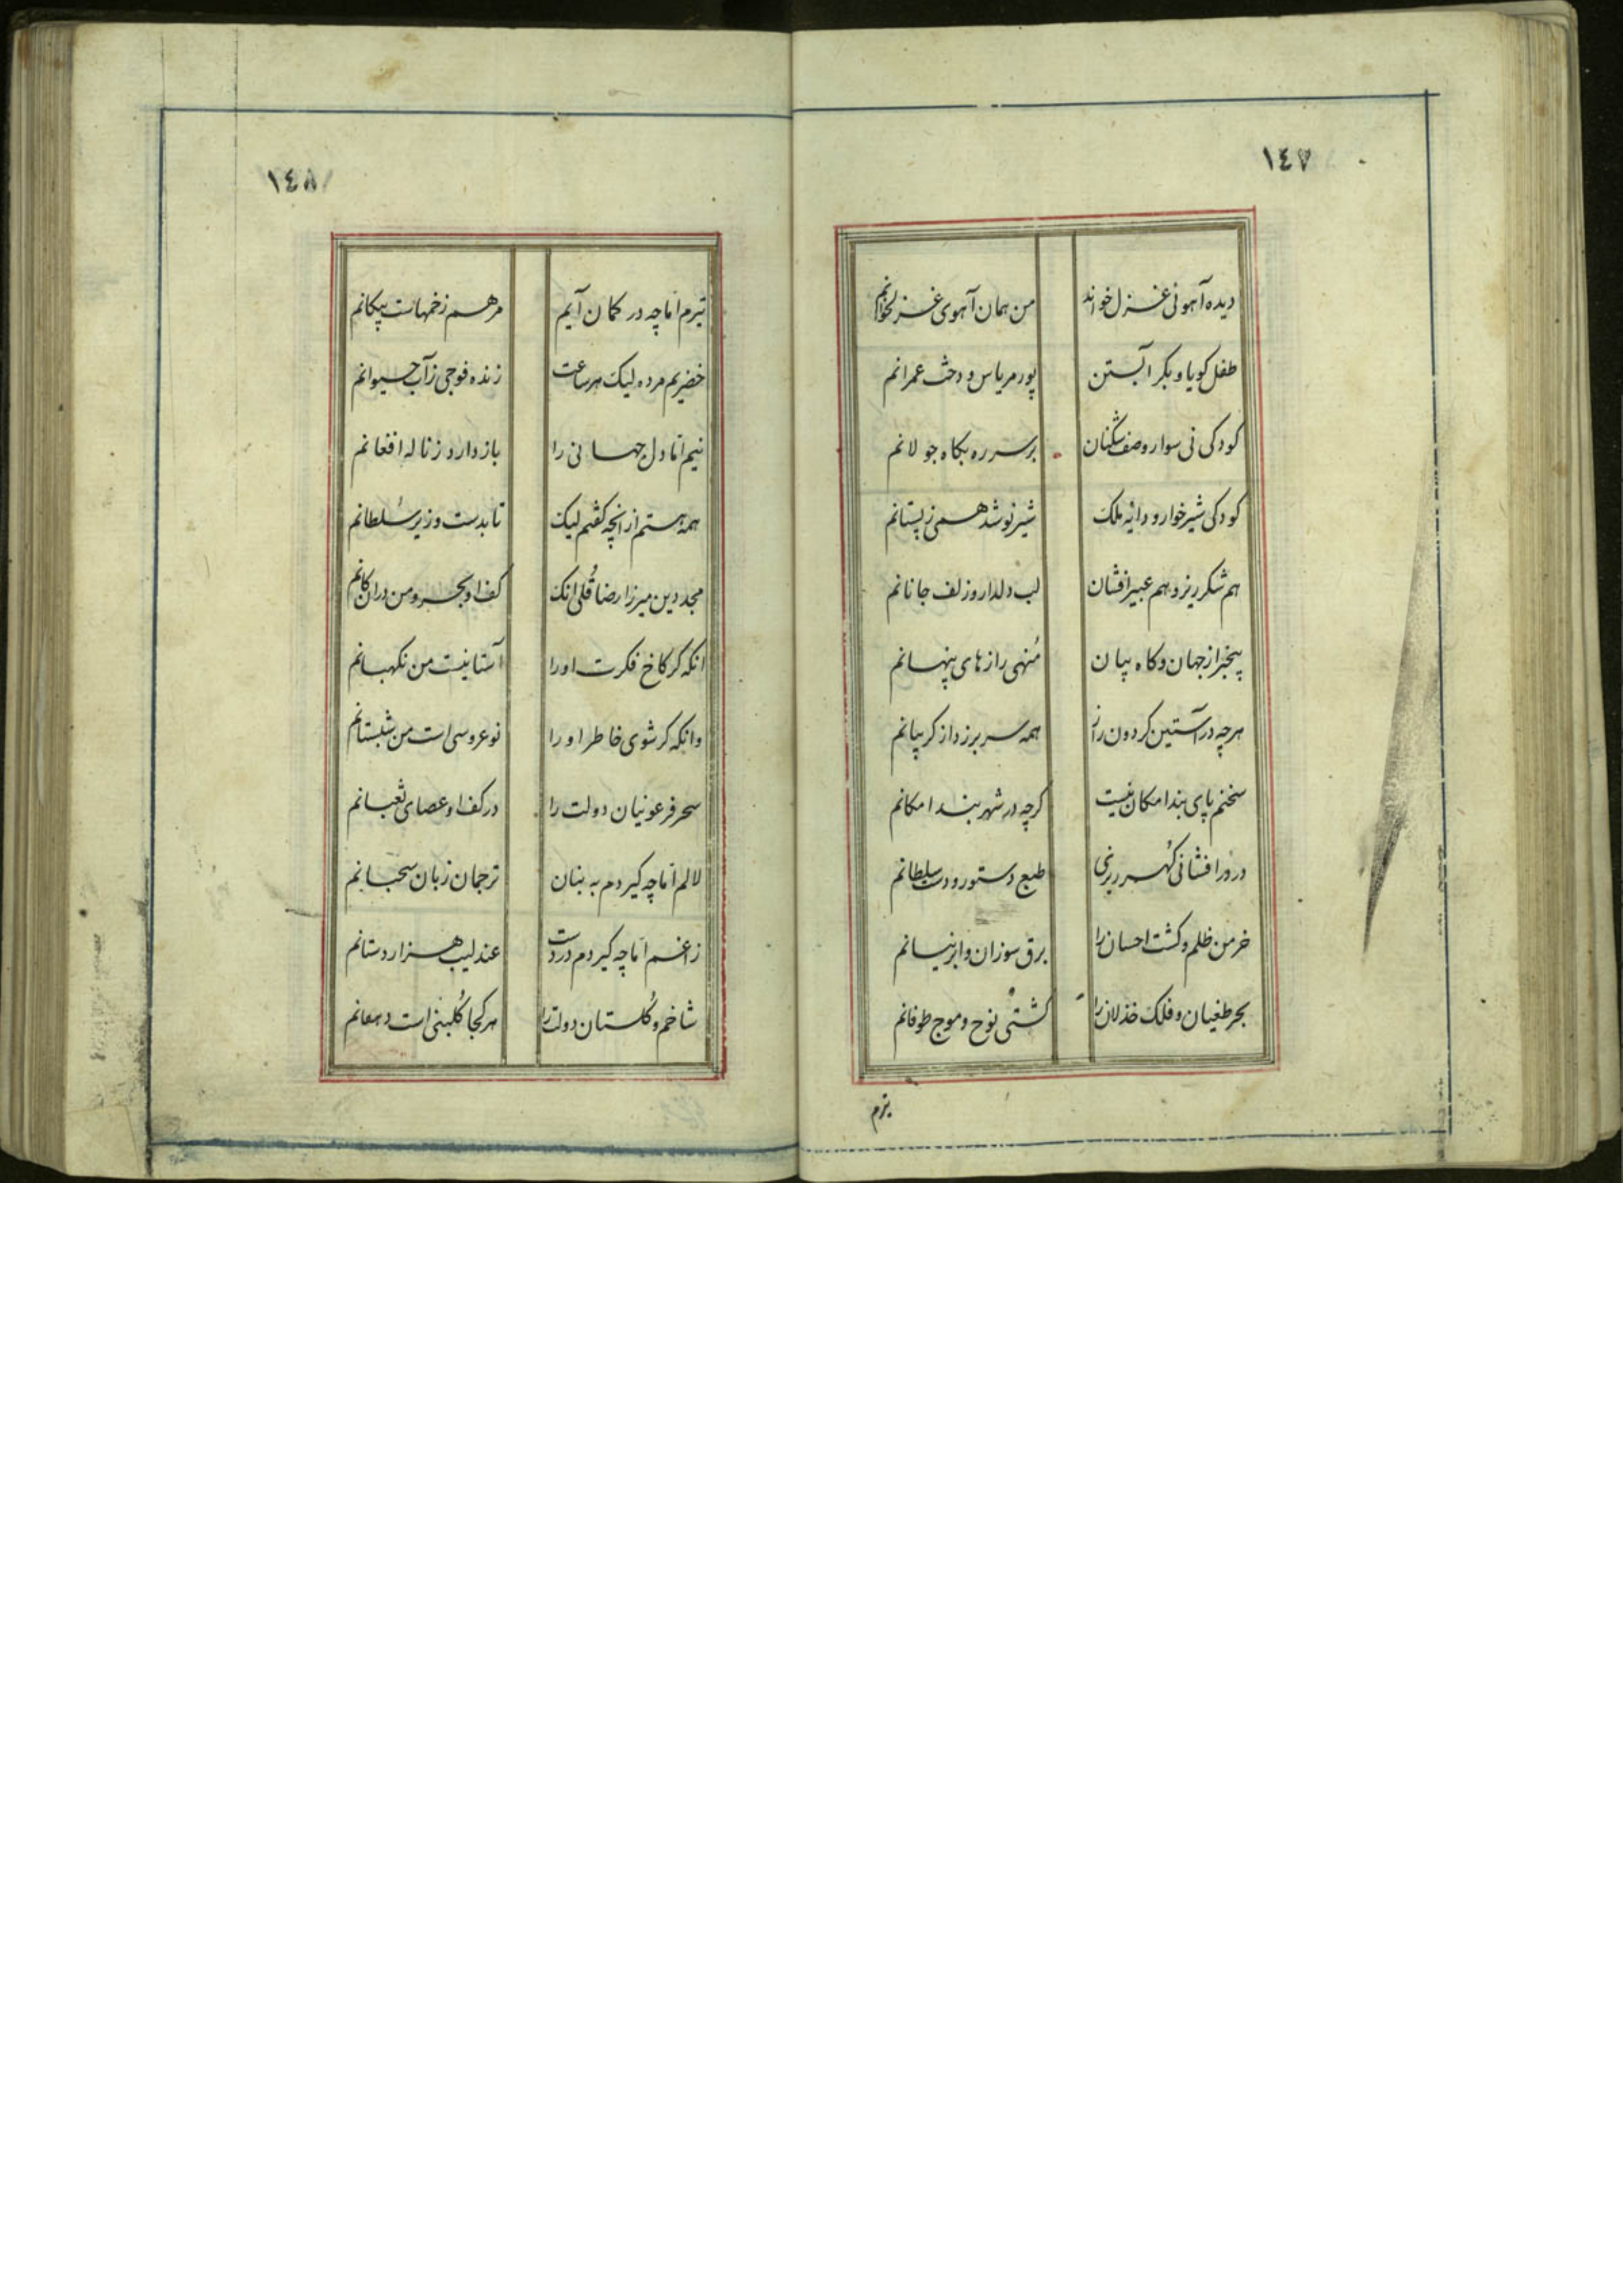 ١٤٧
دیده آهوئی غزل خواند من همان آهوی غزلخوانم
طفل کویا و بکر آبستن پور مریاس و دخت عمرانم
کودکی نی سوار و صف شکنان بر سر ره بکاه جولانم
کودکی شیرخوار و دایه ملک شیر نوشد همی ز پستانم
هم شکر ریز و هم عبیر افشان لب دلدار و زلف جانانم
بیخبر از جهان و کاه بیان منهی رازهای پنهانم
هرچه در آستین کردون راز همه سر برزد از کریبانم
سخنم پای بند امکان نیست کرچه در شهر بند امکانم
در در افشانی کهر ریزی طبع دستور و دست سلطانم
خرمن ظلم و کشت احسان را برق سوزان و ابر نیسانم
بحر طغیان و فلک خذلان را کشتی نوح و موج طوفانم
تیرم
١٤٨
تیرم اما چه در کمان آیم مرهم زخمهاست پیکانم
خضریم مرده لیک هر ساعت زنده فوجی ز آب حیوانم
نیم اما دل جهانی را باز دارد ز ناله افغانم
همه هستم از انچه کفتم لیک تا بدست وزیر سلطانم
مجد دین میرزا رضا قلی انک کف او بحر و من در ان کانم
انکه کر کاخ فکرت او را آستانیست من نکهبانم
وانکه کر شوی خاطر او را نو عروسی است من شبستانم
سحر فرعونیان دولت را در کف او عصای ثعبانم
لالم اما چه کیردم به بنان ترجمان زبان سحبانم
زاغم اما چه کیردم در دست عندلیب هزار دستانم
شاخم و کلستان دولت را هر کجا کلبنی است دهقانم